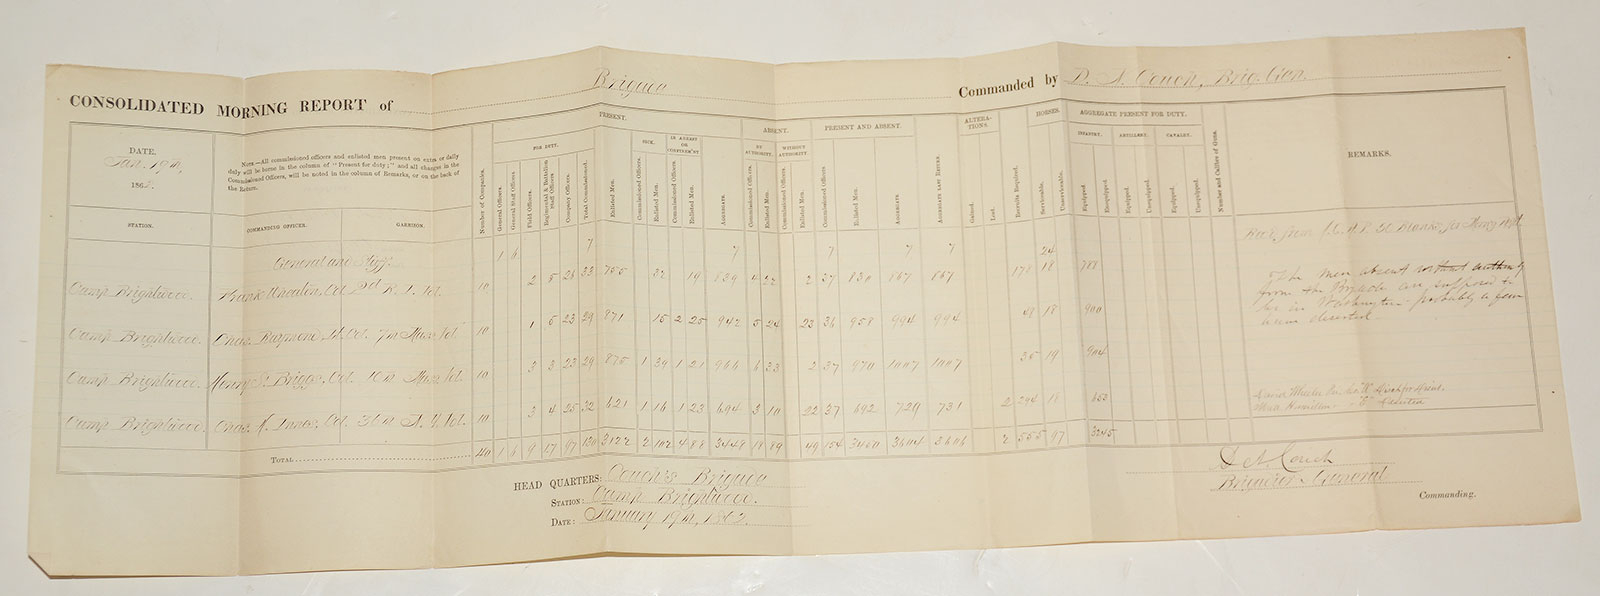 CONSOLIDATED MORNING REPORT of Brigade Commanded by D. N. Couch, Brig. Gen.
DATE.
Jan. 19th,
1862.
NOTE.—All commissioned officers and enlisted men present on extra or daily
duty will be borne in the column of "Present for duty;" and all changes in the
Commissioned Officers, will be noted in the column of Remarks, or on the back of
the Return.
STATION.
COMMANDING OFFICER.
GARRISON.
Number of Companies.
PRESENT.
FOR DUTY.
General Officers.
General Staff Officers
Field Officers.
Regimental & Battalion Staff Officers
Company Officers.
Total Commissioned.
Enlisted Men.
SICK.
Commissioned Officers.
Enlisted Men.
IN ARREST OR CONFINEM'NT
Commissioned Officers
Enlisted Men.
AGGREGATE
ABSENT.
BY AUTHORITY.
Commissioned Officers.
Enlisted Men.
WITHOUT AUTHORITY.
Commissioned Officers
Enlisted Men.
PRESENT AND ABSENT.
Commissioned Officers
Enlisted Men.
AGGREGATE
AGGREGATE LAST RETURN.
ALTERATIONS.
Gained.
Lost.
Recruits Required.
HORSES.
Serviceable.
Unserviceable.
AGGREGATE PRESENT FOR DUTY.
INFANTRY.
Equipped
Unequipped.
ARTILLERY.
Equipped
Unequipped.
CAVALRY.
Equipped
Unequipped.
Number and Calibre of Guns.
REMARKS.
General and Staff 1 6 7 7 7 7 7 24
Camp Brightwood. Frank Wheaton, Col 2d R. I. Vol. 10 2 5 26 33 755 32 19 839 4 22 2 37 830 867 867 178 18 788
Camp Brightwood. Chas. Raymond Lt. Col. 7th Mass Vol. 10 1 5 23 29 871 15 2 25 942 5 24 23 36 958 994 994 18 900
Camp Brightwood. Henry S. Briggs, Col. 10th Mass Vol. 10 3 3 23 29 875 1 39 1 21 966 6 33 2 37 970 1007 1007 35 19 904
Camp Brightwood. Chas. H. Innes, Col. 36th N. Y. Vol. 10 3 4 25 32 621 1 16 1 23 694 3 10 22 37 692 729 731 2 294 18 653
TOTAL 40 1 6 9 17 97 130 3122 2 102 4 88 3448 18 89 49 154 3450 3604 3606 2 555 97 3245
The men absent without authority
from the Brigade are supposed to
be in Washington. probably a few
have deserted.
HEAD QUARTERS: Couch's Brigade
STATION: Camp Brightwood.
DATE: January 19th, 1862.
D N. Couch
Brigadier General
Commanding.